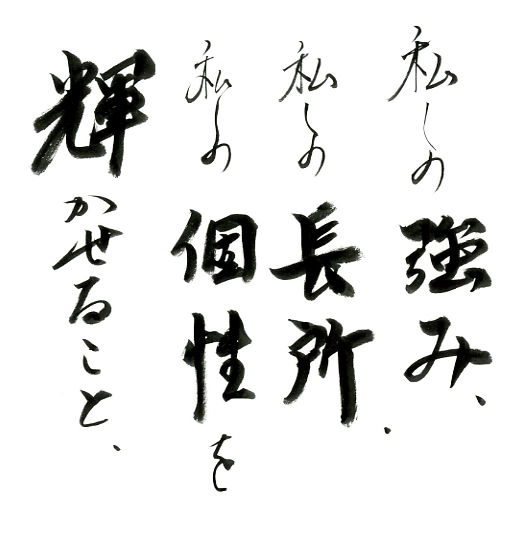 私しの強み、
私しの長所、
私しの個性を
輝かせること、